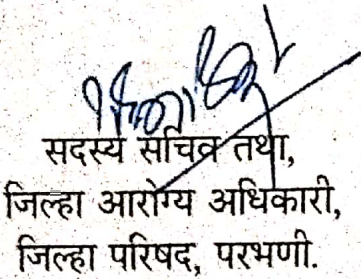 सदस्य सचिव तथा,
जिल्हा आरोग्य अधिकारी,
जिल्हा परिषद, परभणी.